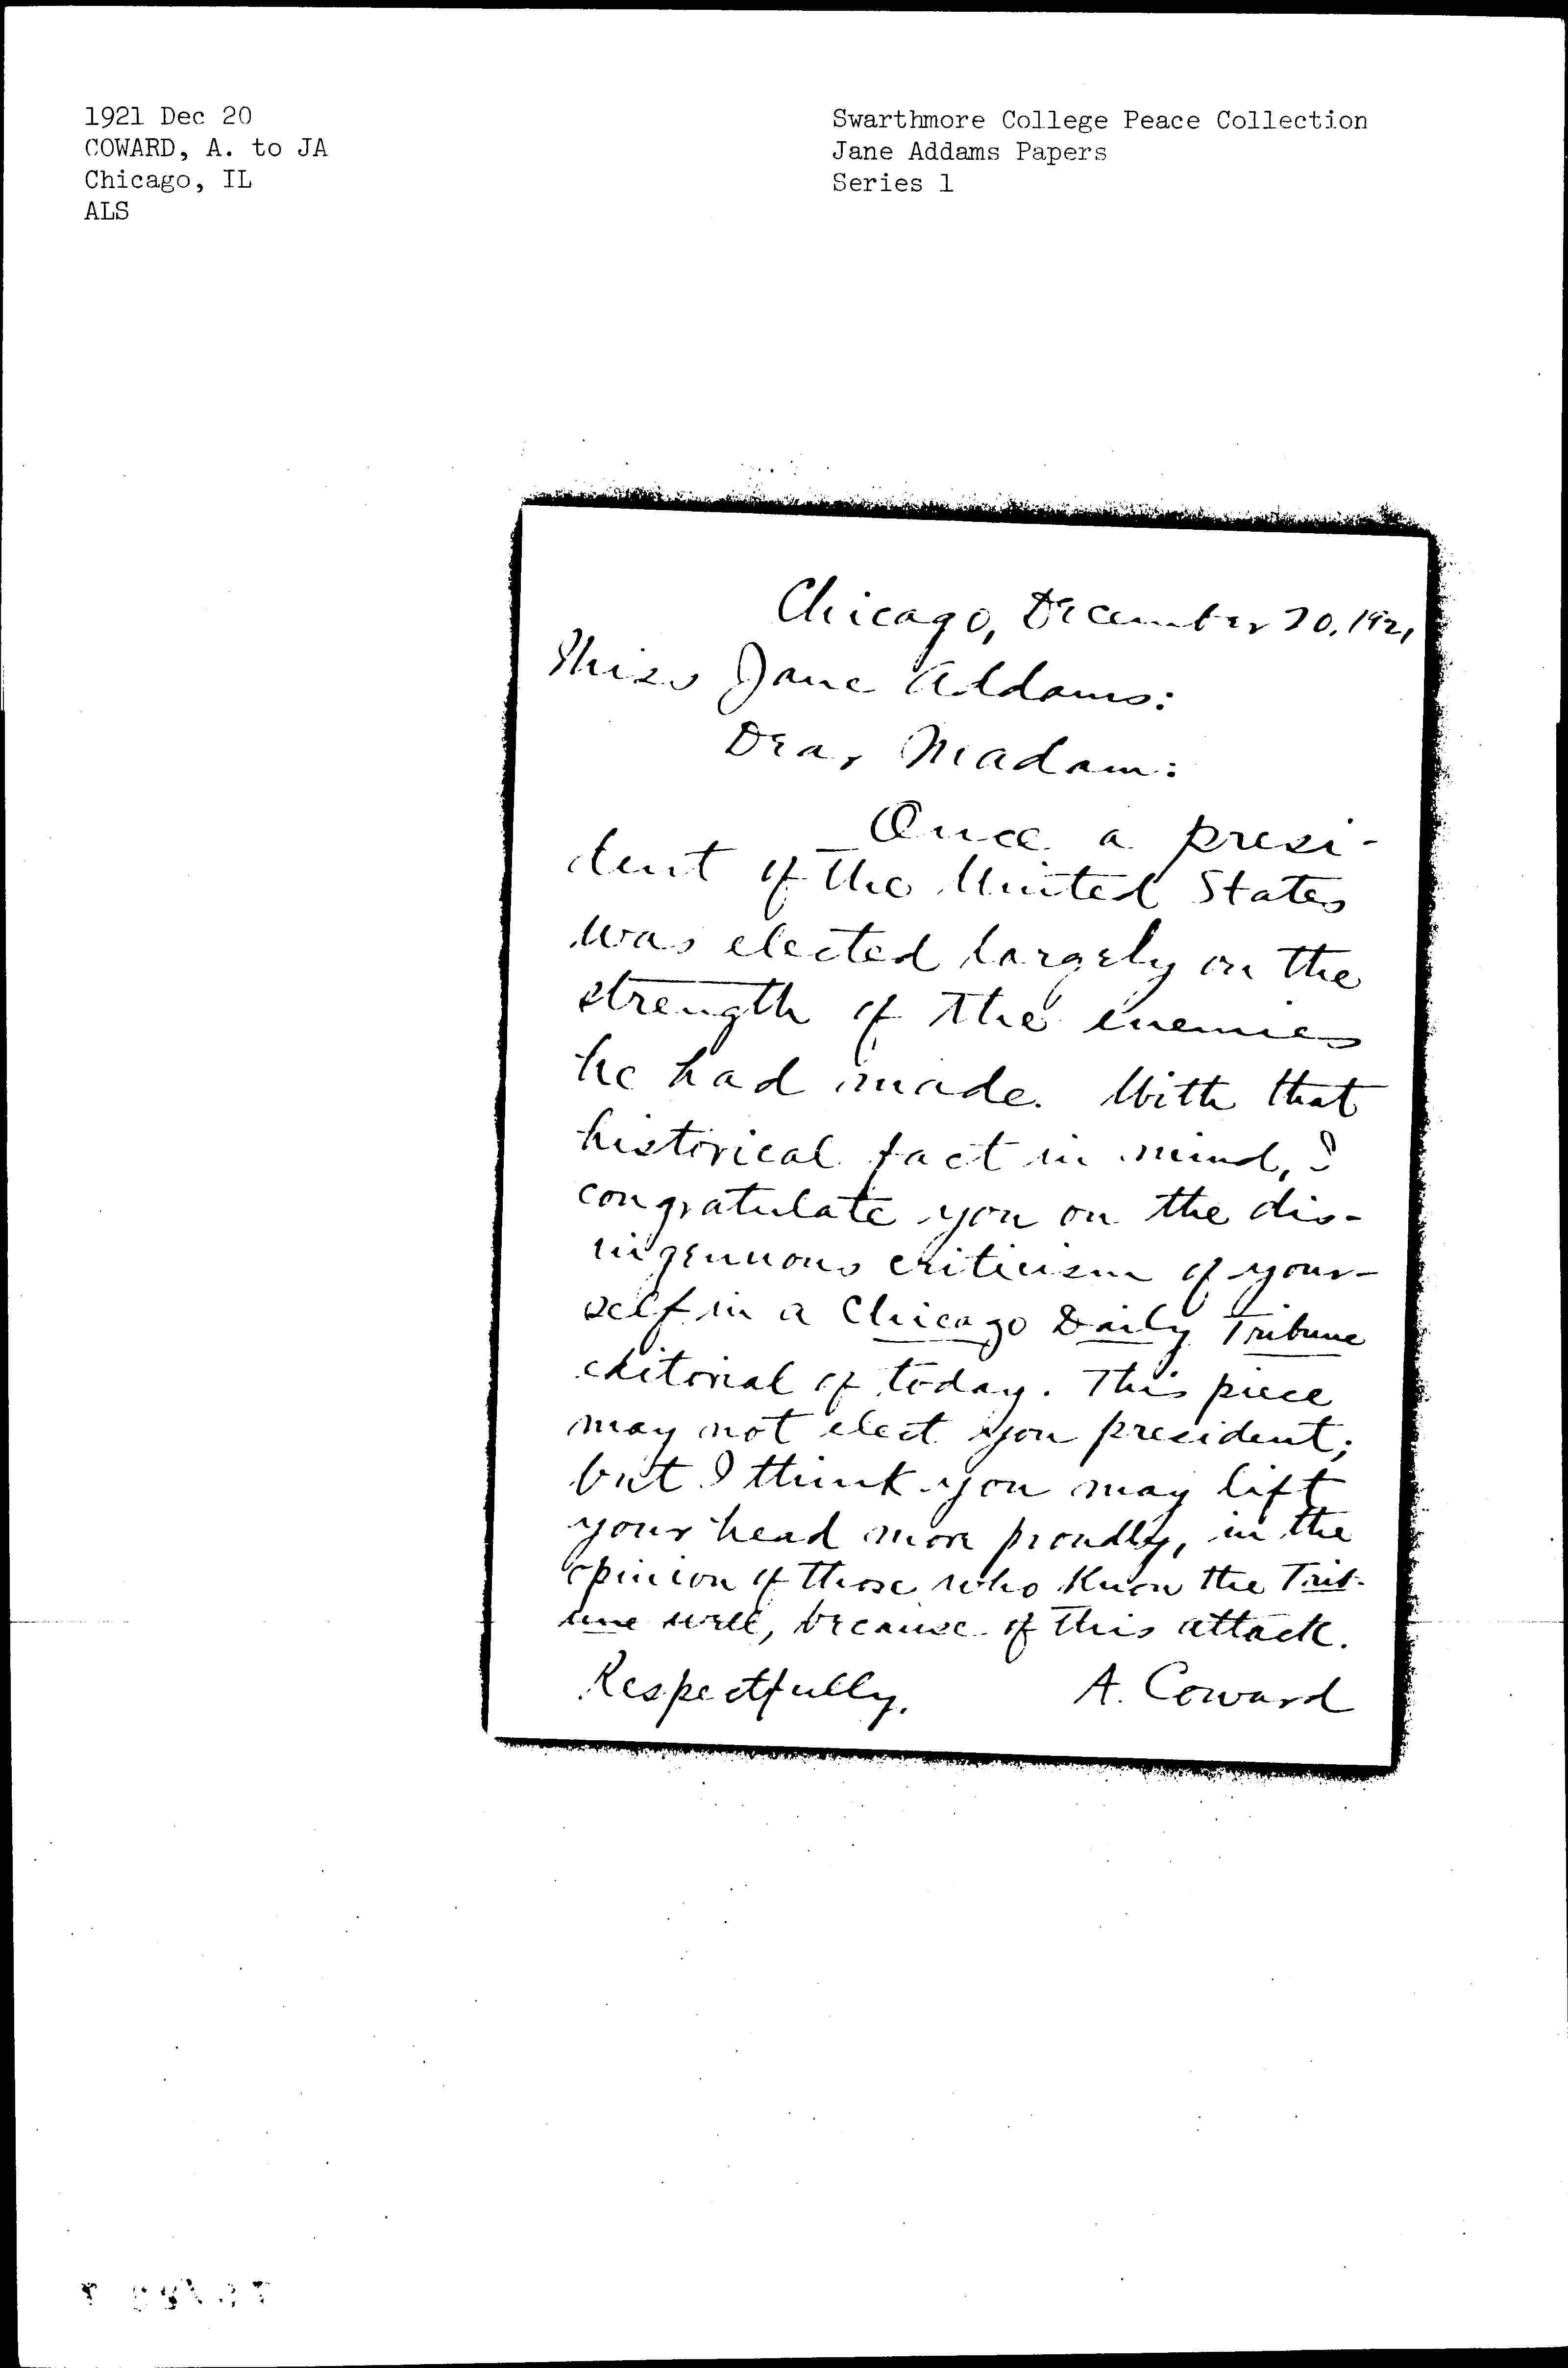 1921 Dec 20
COWARD, A. to JA
Chicago, IL
ALS
Swarthmore College Peace Collection
Jane Addams Papers
Series 1
Chicago, December 20, 1921
Miss Jane Addams:
Dear Madam:
Once a presi-
dent of the United States
was elected largely on the
strength of the enemies
he had made. With that
historical fact in mind, I
congratulate you on the dis-
ingenuous criticism of your-
self in a Chicago Daily Tribune
editorial of today. This piece
may not elect you president;
but I think you may lift
your head more proudly, in the
opinion of those who know the Trib-
une well, because of this attack.
Respectfully, A. Coward